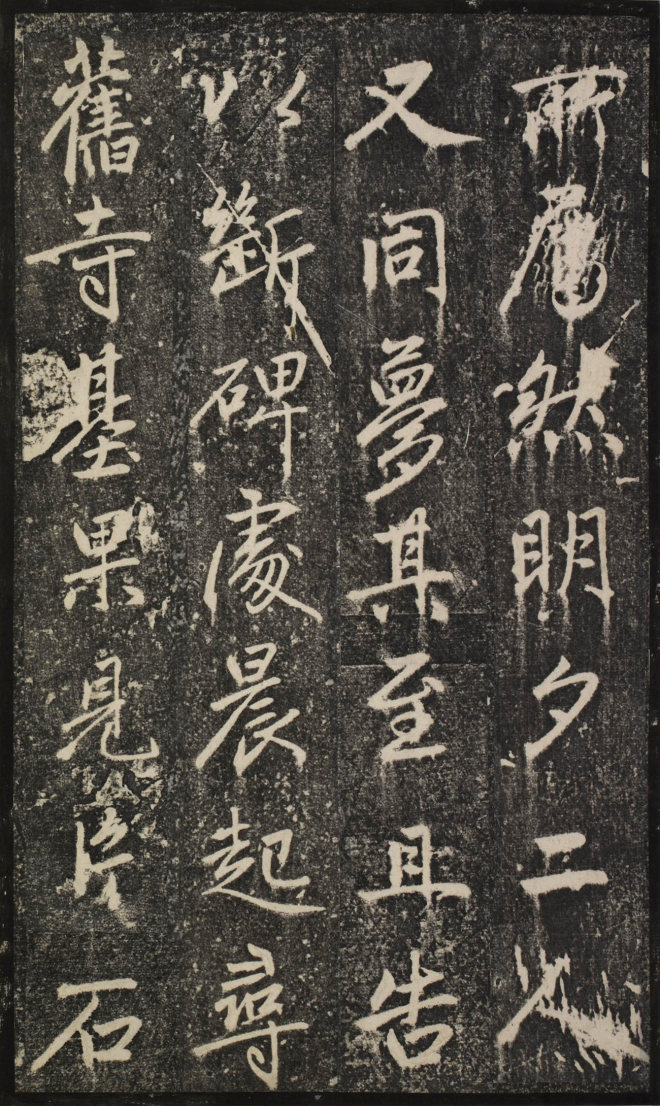 所然明夕二人
又同夢其至且告
以斷碑處晨起尋
舊寺基果見片石